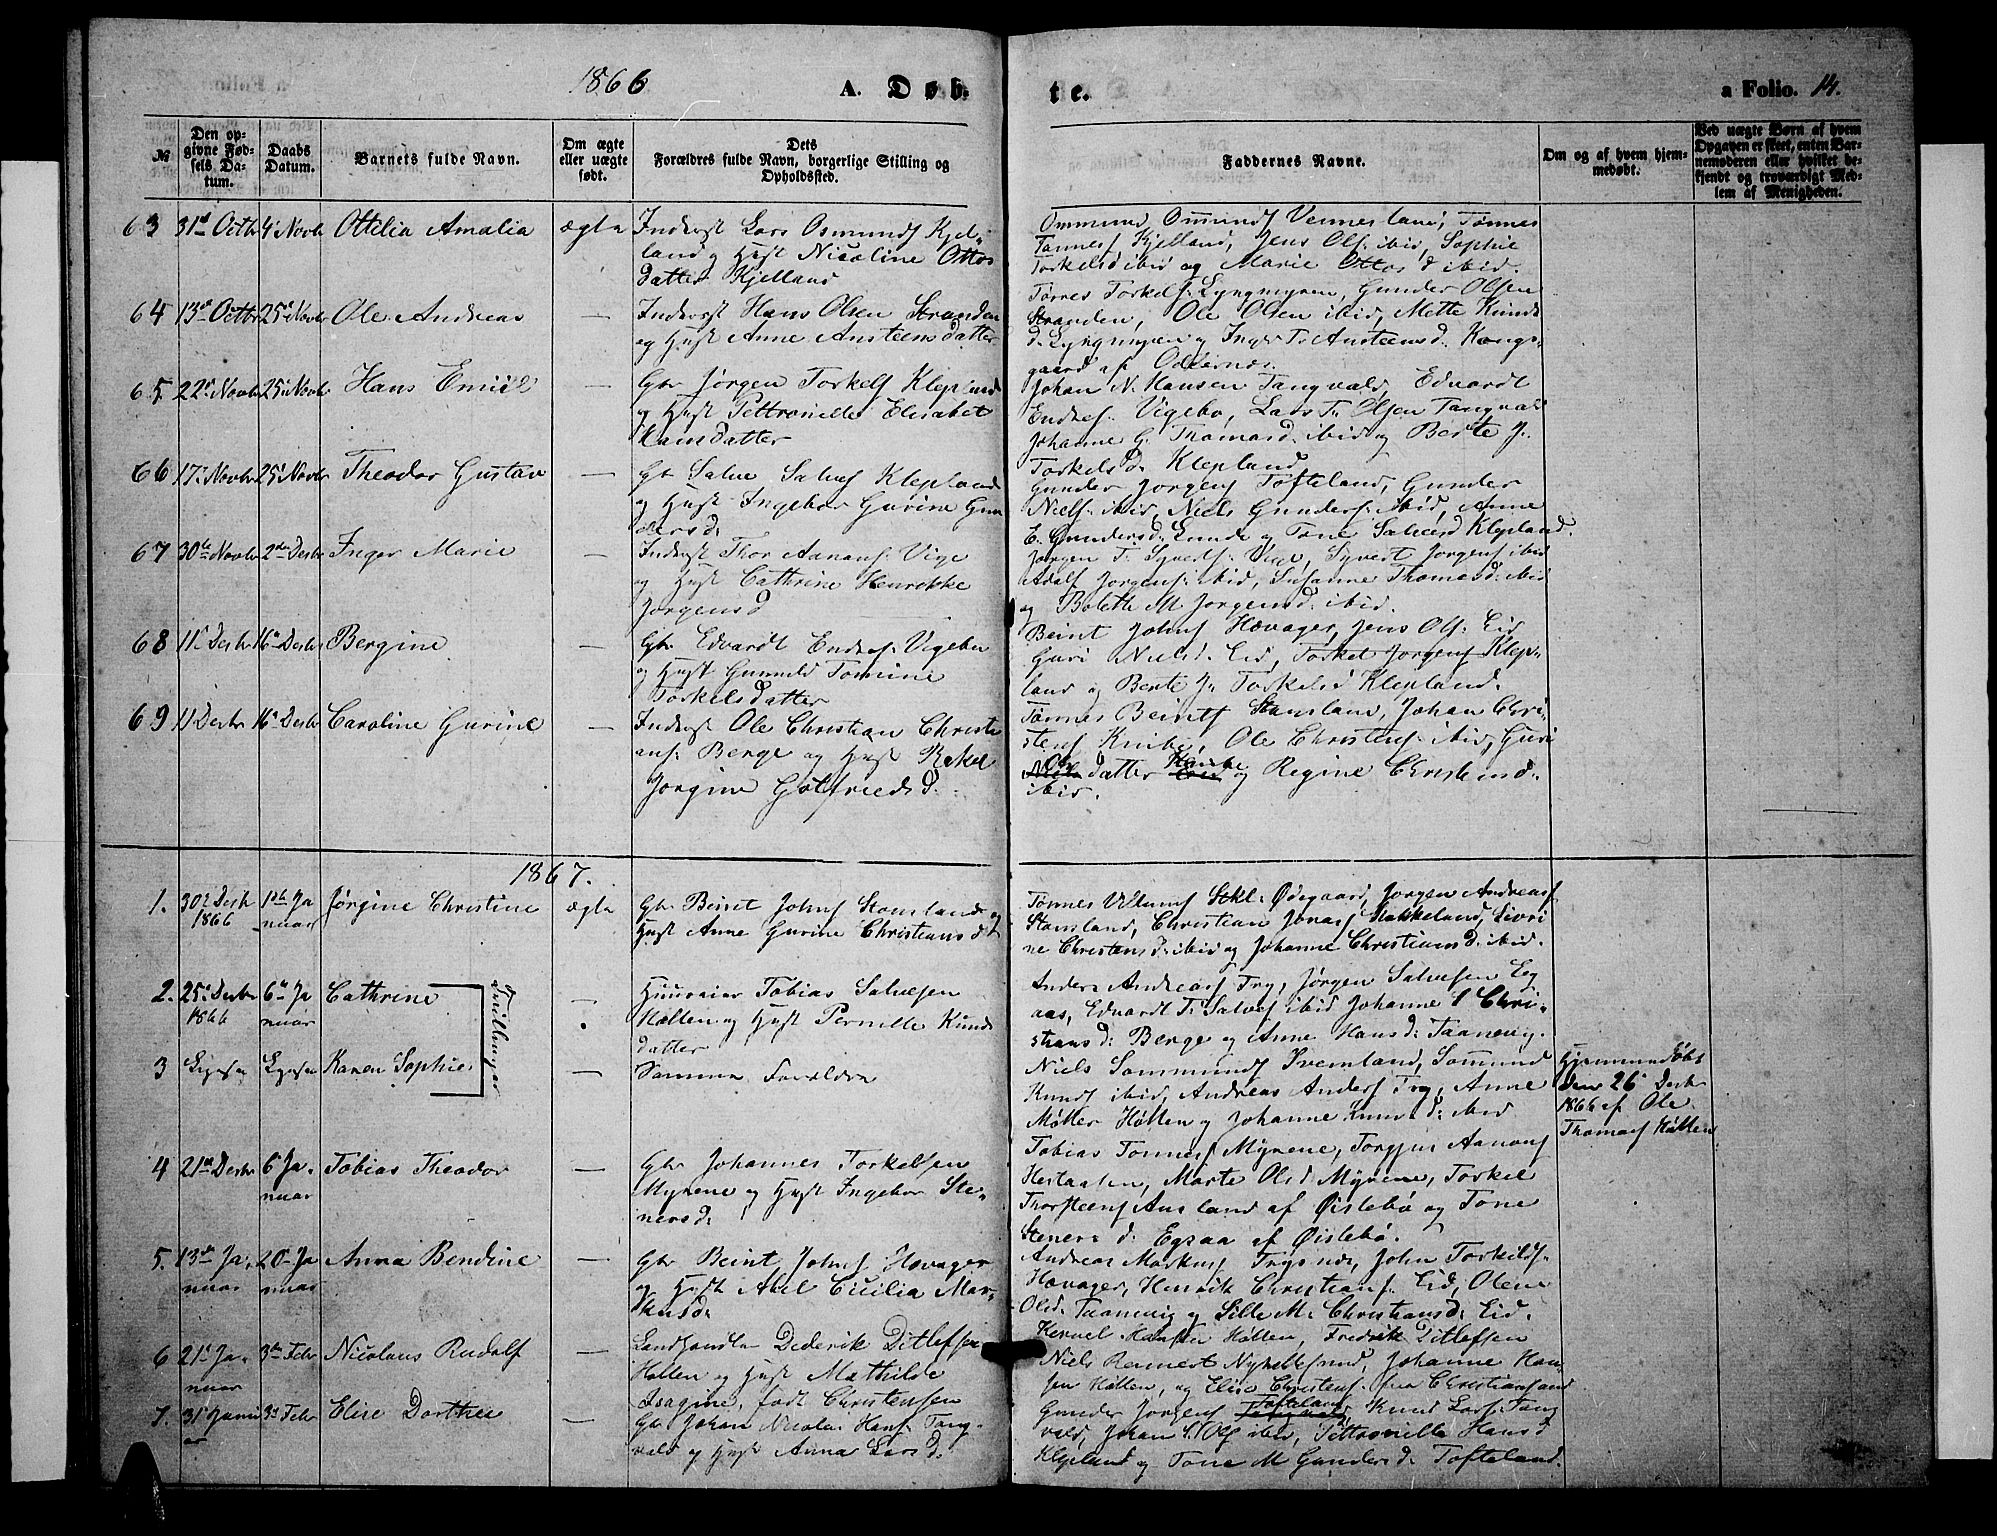 1866
A. Døb-
te.
a Folio. 14.
№
Den op-
givne Fød-
sels Da-
tum.
Daabs
Datum.
Barnets fulde Navn.
Om ægte
eller uægte
født.
Dets
Forældres fulde Navn, borgerlige Stilling og
Opholdssted.
Faddernes Navne.
Om og af hvem hjem-
medøbt.
Ved uægte Børn af hvem
Opgaven er skeet, enten Bar-
nemoderen eller hvilket be-
kjendt og troværdigt Med-
lem af Menigheden.
63 31te Octbr 4 Novbr Ottilia Amalia ægte
Inderst Lars Osmunds Kjel-
land og Hust Nicoline Ottos
datter Kjelland
Ommund Osmunds Vennesland, Tønnes
Tønnes Kjelland, Jens Ols. ibid, Sophie
Torkelsd ibid og Marie Ottosd ibid.
64 13de Octbr 25de Novbr Ole Andreas —
Inderst Hans Olsen Stranden
og Hust Anne Ansteensdatter
Tørres Torkels. Lyngmyren, Gunder Olsen
Stranden, Ole Olsen ibid, Mette Knuds
d. Lyngmyren og Inger T. Ansteensd. Kongs-
gaard af Oddernes.
65. 22de Novbr 25de Novbr Hans Emiil —
Gbr Jørgen Torkels Klepland
og Hust Pettronille Elisabet
Hansdatter
Johan N. Hansen Tangvald, Edvardt
Endres. Vigebo, Lars T. Olsen Tangvald
Johanne G. Thomasd. ibid og Berte J.
Torkelsd. Klepland
66 17de Novbr 25de Novbr Theodor Gustav —
Gbr Salve Salves Klepland
og Hust Ingebor Gurine Gun
dersd.
Gunder Jorgens Tofteland, Gunder
Niels. ibid, Niels Gunders. ibid, Anne
E. Gundersd. Lunde og Tone Salvesd Klepland.
67 30te Novbr 2den Decbr Inger Marie —
Inderst Thor Aanons. Vige
og Hust Cathrine Henrikke
Jorgensd
Jorgen T. Syverts. Vige, Syvert Jorgens ibid
Adolf Jorgens. ibid, Susanne Thomasd. ibid
og Bolette M Jorgensd. ibid.
68 11te Decbr 16de Decbr Bergine —
Gbr Edvardt Endres. Vigebo
og Hust Gunnild Tomine
Torkelsdatter
Beint Johns Hovager, Jens Ols. Eid
Guri Nielsd. Eid, Torkel Jorgens Klep-
land og Berte J. Torkelsd Klepland.
69 11 Decbr 16de Decbr Caroline Gurine —
Inderst Ole Christian Christi
ans. Berge og Hust Rakel
Jorgine Gotfriedsd.
Tønnes Beints Stamsland, Johan Chri-
stens Knibe, Ole Christens. ibid, Guri
Ols datter Knibe og Regine Christensd.
ibid.
1867.
1. 30te Decbr 1ste Ja Jørgine Christine ægte
1866 nuar
Gbr Beint Johns Stamsland og
Hust Anne Gurine Christiansd
Tønnes Villums Stkl. Ødegaard, Jorgen Andreas
Stamsland, Christian Jonas Stakkeland, Livri
ne Christensd. ibid og Johanne Christiansd. ibid.
2. 25de Decbr 6te Ja Cathrine —
1866 nuar
Tvillinger
Huuseier Tobias Salvesen
Høllen og Hust Pernille Knuds
datter
Anders Andreas Try, Jørgen Salvesen Eg
aas, Edvardt T. Salves ibid Johanne S Chri-
stiansd. Berge og Anne Hansd. Taanevig.
3 Ligesaa Ligesaa Karen Sophie. —
Samme Forældre
Niels Sommunds Ivemland, Sommund
Knuds ibid, Andreas Anders Try, Anne
Møller Høllen og Johanne Knudsd. ibid
Hjemmedøbt
den 26 Decbr
1866 af Ole
Thomas Høllen
4 21de Decbr 6te Ja. Tobias Theodor —
nuar
Gbr Johannes Torkelsen
Myrene og Hust Ingebor Ste-
nersd.
Tobias Tønnes Myrene, Torgjus Aanons
Hestaalen, Marte Olsd Myrene, Torkel
Thorsteens Ausland af Øislebø og Tone
Stenersd. Egsaa af Øislebø.
5. 13de Ja. 20de Ja Anna Bendine —
nuar nuar
Gbr Beint Johns Hovager
og Hust Axel Cicilia Mar-
kusd.
Andreas Markus Trysnes, John Torkilds.
Hovager, Henrik Christians. Eid, Olene
Olsd. Taanevig og Sille M. Christiansd. Eid.
6 21de Ja. 3de Febr Nicolaus Rudolf
nuar
Landhandler Dederik Ditlefsen
Høllen og Hust Mathilde
Isagine, født Christensen
Kornel Hansen Høllen, Fredrik Ditlefsen
Niels Rennert Nyhellesund, Johanne Han-
sen Høllen, og Elise Christens. fra Christiansand
7. 31te Janu 3de Febr Elise Dorthea —
ar
Gbr Johan Nicolai Hans. Tang-
vald og Hust Anna Larsd.
Gunder Jorgens Tofteland, Knud Lars. Tang
vald, Johan S. Ols ibid, Pettronille Hansd
Klepland og Tone M Gundersd. Tofteland.